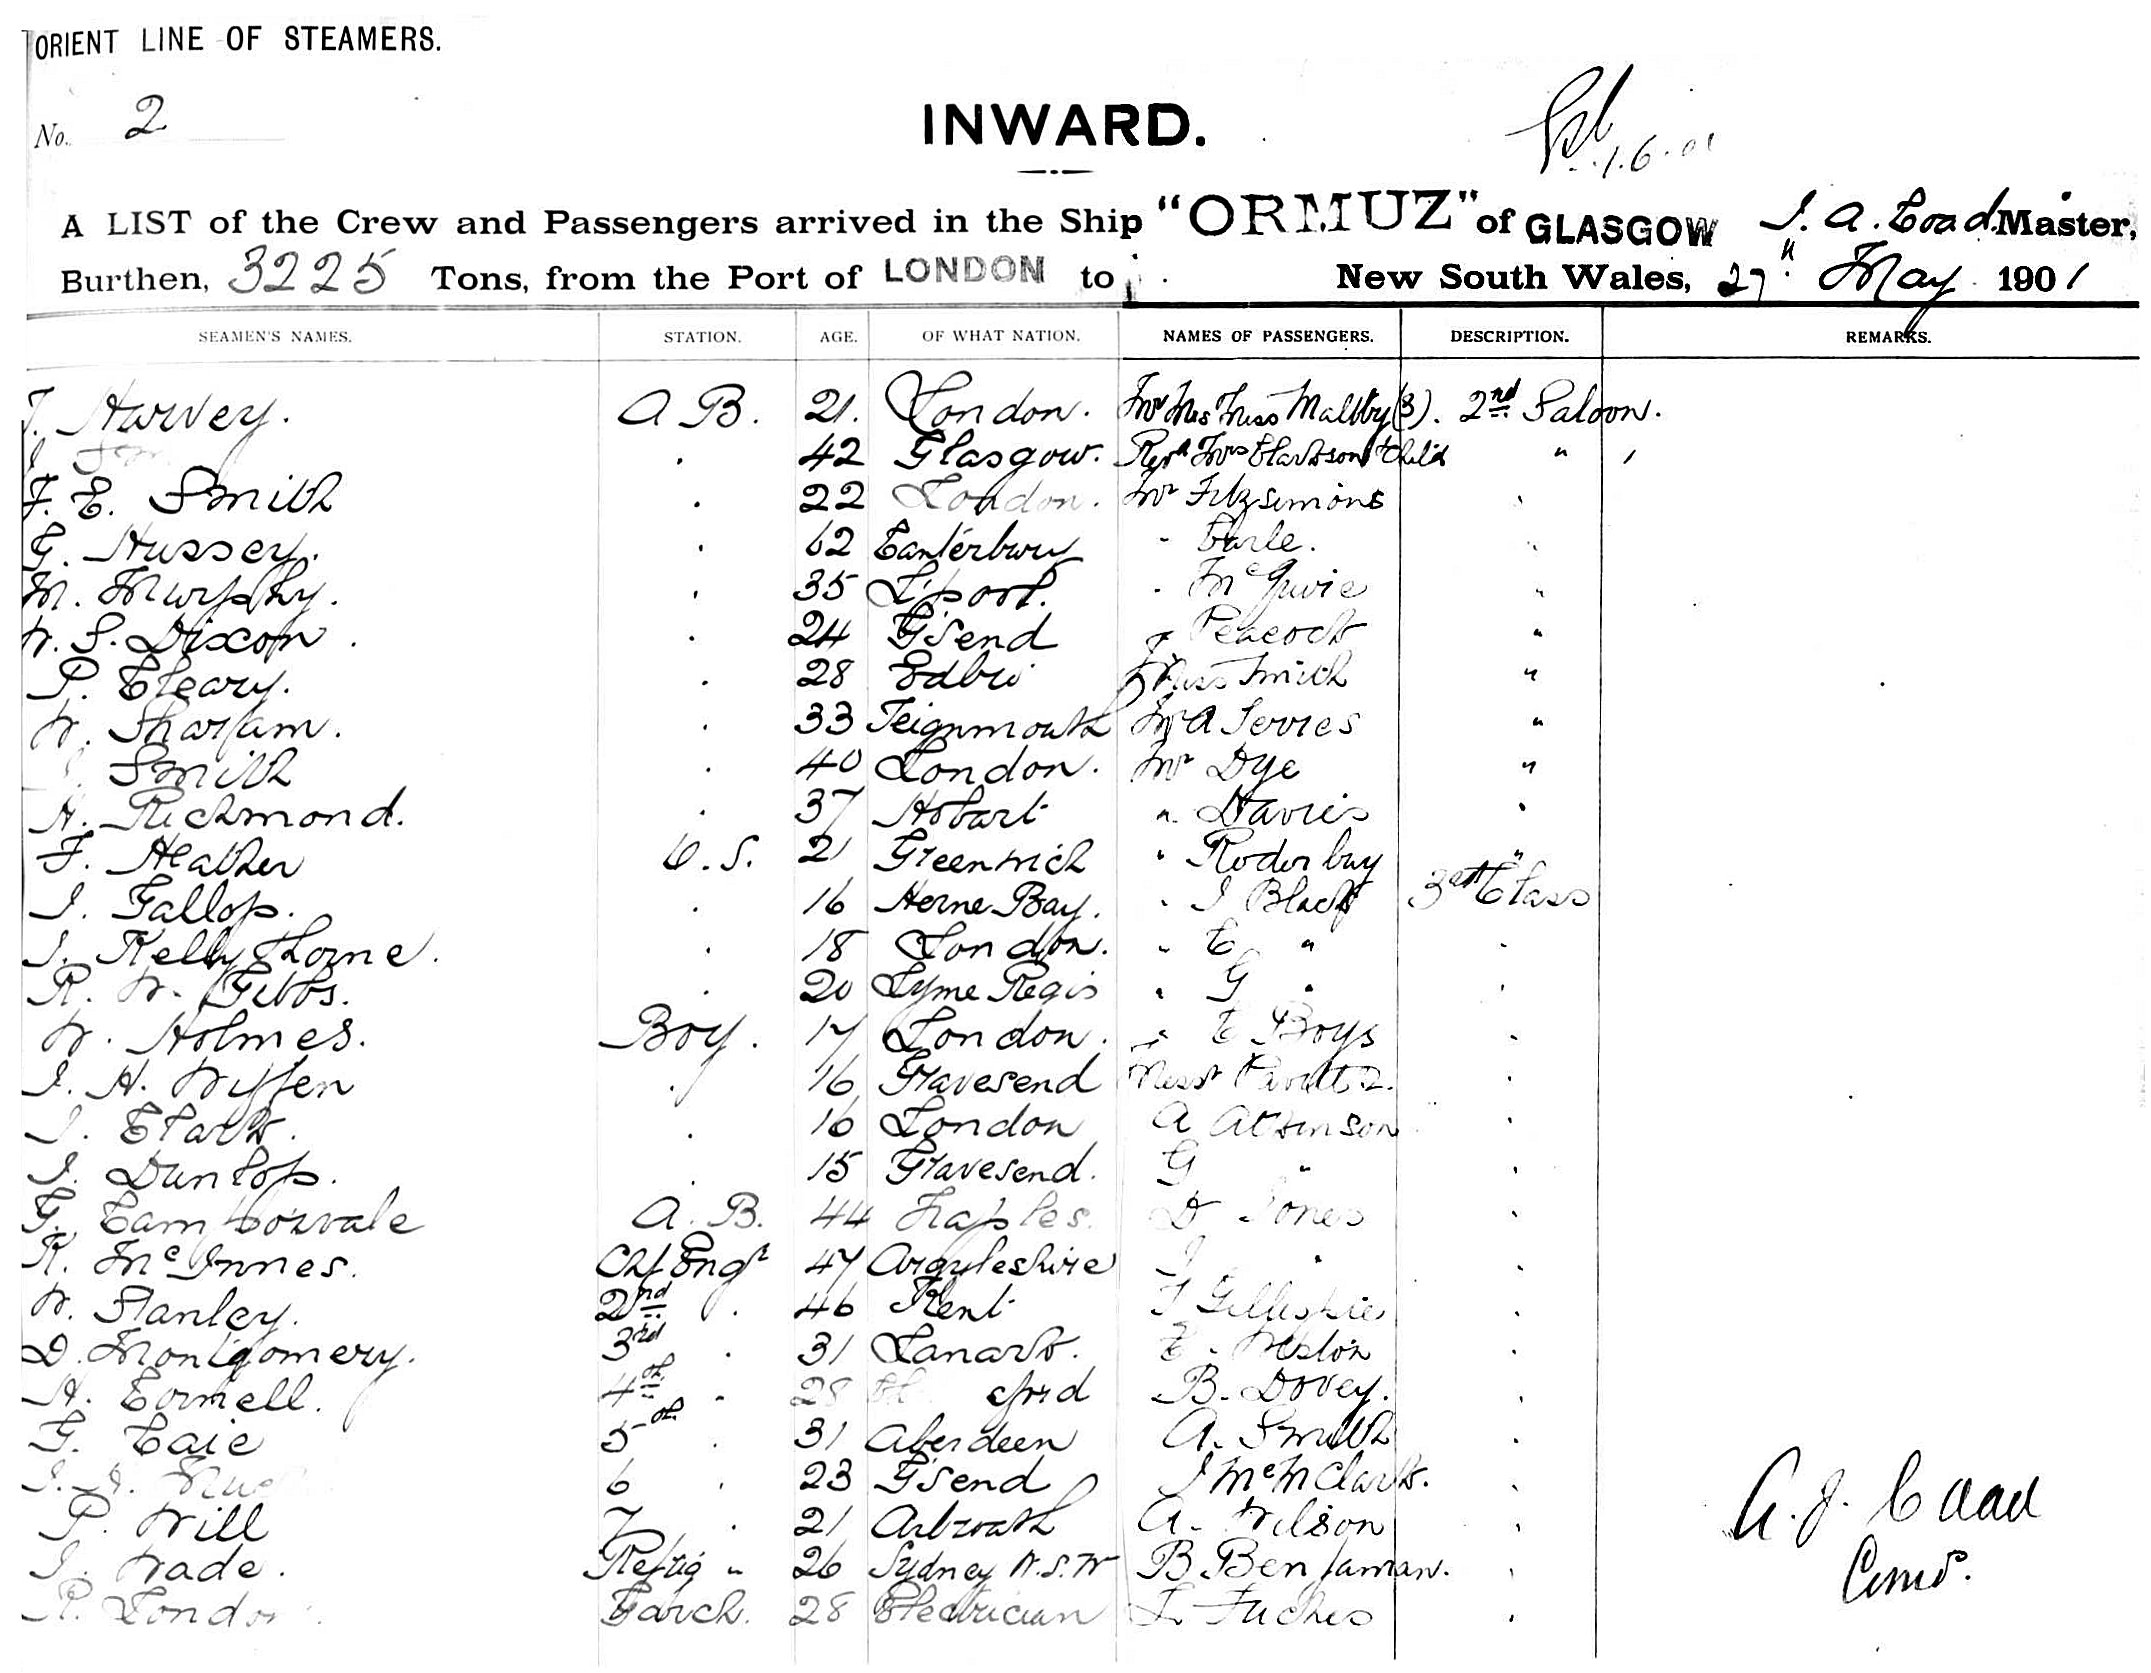 ORIENT LINE OF STEAMERS.
No. 2
INWARD.
1.6.01
A LIST of the Crew and Passengers arrived in the Ship "ORMUZ" of GLASGOW J. A. Coad Master,
Burthen, 3225 Tons, from the Port of LONDON to New South Wales, 27" May 1901
SEAMEN'S NAMES. STATION. AGE. OF WHAT NATION. NAMES OF PASSENGERS. DESCRIPTION. REMARKS.
T. Harvey. A B. 21. London. Mr Mrs Miss Maltby (3). 2nd Saloon.
42 Glasgow. Revd Mrs Clarkson + Child "
F. E. Smith . 22 London. Mr Fitzsimons .
G. Hussey. . 62 Canterbury " Earle. .
M. Murphy. . 35 L'pool. " "
W. S. Dixon . 24 G'Send Peacock "
P. Cleary. . 28 Edbro Miss Smith "
W. Sharlam. . 33 Teignmouth Mr A Serries "
Smith . 40 London. Mr Dye "
H. Richmond. . 37 Hobart " Davies "
F. Heather O. S. 21 Greenwich " Roderbuy "
J. Gallop. . 16 Herne Bay. " J Black 3rd Class
J. Kellythorne. . 18 London. " C " .
R. W. Gibbs. . 20 Lyme Regis " G " .
W. Holmes. Boy. 17 London. " C Boys .
J. H. Wiffen . 16 Gravesend Messrs 2. .
J. Clark. . 16 London A Atkinson .
J. Dunlop. . 15 Gravesend. G " .
G. Cambosvale A. B. 44 Naples. D Jones .
R. McInnes. Chf Engr 47 Argyleshire J " .
W. Stanley. 2nd . 46 Kent T Gillespie .
D. Montgomery. 3rd . 31 Lanark. C. Weston .
H. Cornell. 4th . 28 B. Dovey. .
G. Caie 5th . 31 Aberdeen A. Smith .
6 . 23 G'Send J McMClark. .
P. Will 7 . 21 Arbroath A. Wilson .
J. Wade. Refrig " 26 Sydney N.S.W B Benjaman. .
R. London. 28 Electrician L Fuches .
A. J. Coad
Comd.